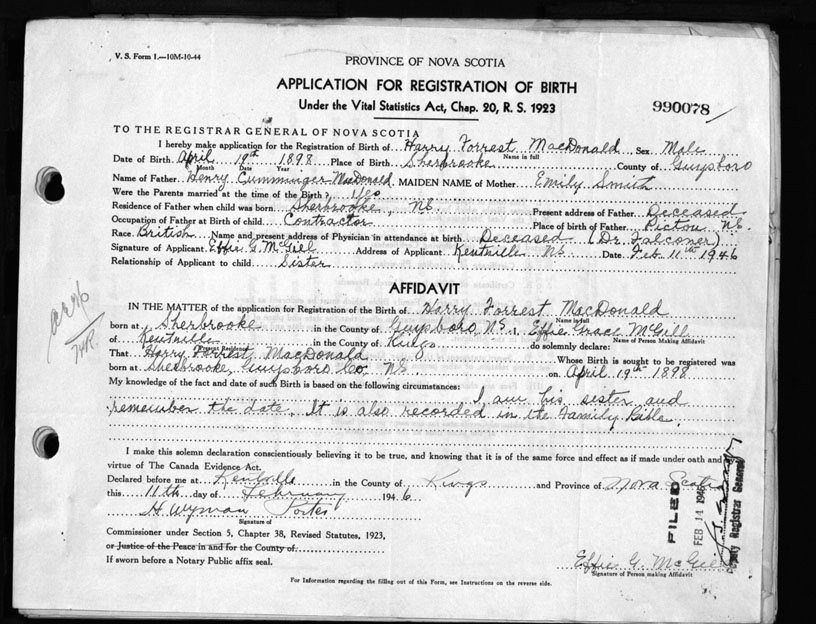 V. S. Form 1.—10M-10-44
PROVINCE OF NOVA SCOTIA
APPLICATION FOR REGISTRATION OF BIRTH
Under the Vital Statistics Act, Chap. 20, R. S. 1923
990078
TO THE REGISTRAR GENERAL OF NOVA SCOTIA
I hereby make application for the Registration of Birth of Harry Forrest MacDonald Sex Male
Name in full
Date of Birth April 19th 1898 Place of Birth Sherbrooke County of Guysboro
Month Date Year
Name of Father Henry Cumminger MacDonald MAIDEN NAME of Mother Emily Smith
Were the Parents married at the time of the Birth? Yes
Residence of Father when child was born Sherbrooke, NS. Present address of Father Deceased
Occupation of Father at Birth of child Contractor Place of birth of Father Pictou NS.
Race British Name and present address of Physician in attendance at birth Deceased (Dr. Falconer)
Signature of Applicant Effie G. McGill Address of Applicant Kentville NS Date Feb 11th 1946
Relationship of Applicant to child Sister
AFFIDAVIT
IN THE MATTER of the application for Registration of the Birth of Harry Forrest MacDonald
Name in full
born at Sherbrooke in the County of Guysboro NS. I, Effie Grace McGill
Name of Person Making Affidavit
of Kentville in the County of Kings do solemnly declare:
Present Residence
That Harry Forrest MacDonald Whose Birth is sought to be registered was
born at Sherbrooke, Guysboro Co. NS on April 19th 1898
My knowledge of the fact and date of such Birth is based on the following circumstances:
I am his sister and
remember the date. It is also recorded in the Family Bible.
I make this solemn declaration conscientiously believing it to be true, and knowing that it is of the same force and effect as if made under oath and by
virtue of The Canada Evidence Act.
Declared before me at Kentville in the County of Kings and Province of Nova Scotia
this 11th day of February 1946
H Wyman
Signature of
Commissioner under Section 5, Chapter 38, Revised Statutes, 1923,
or Justice of the Peace in and for the County of
If sworn before a Notary Public affix seal.
FILED
FEB 14 1946
Deputy Registrar General
Effie G. McGill
Signature of Person making Affidavit
For Information regarding the filling out of this Form, see Instructions on the reverse side.